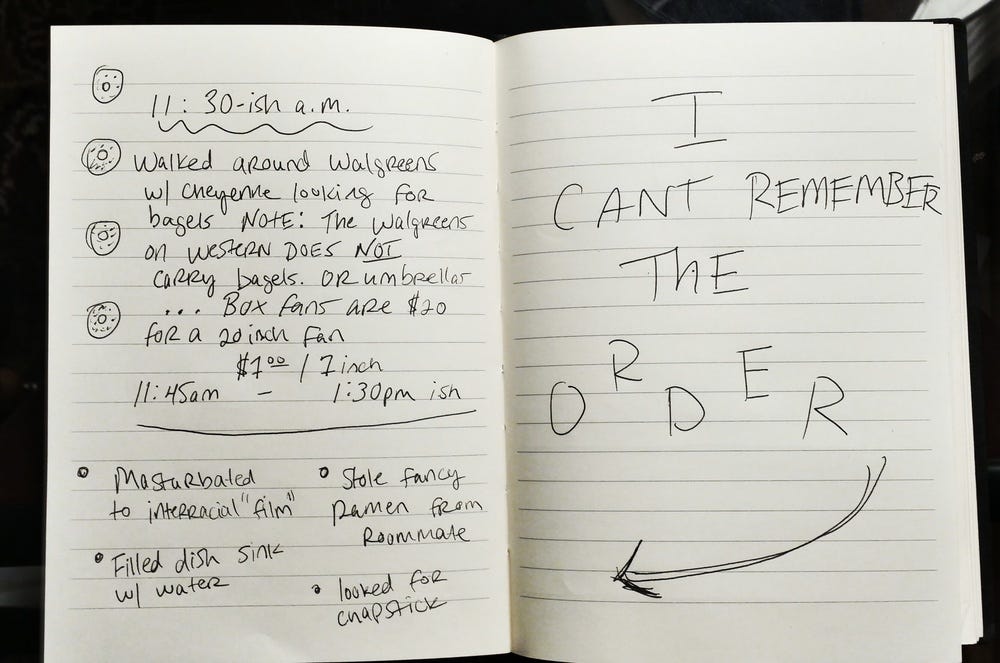 11:30-ish a.m.
Walked around Walgreens
w/ Cheyenne looking for
bagels NOTE: The Walgreens
on Western DOES NOT
CARRY bagels. OR umbrellas
... Box fans are $20
for a 20 inch fan
$1.00 / 1 inch
11:45am - 1:30pm ish
Masturbated
to interracial "film"
Filled dish sink
w/ water
Stole fancy
Ramen from
Roommate
looked for
chapstick
I
CANT REMEMBER
THE
ORDER